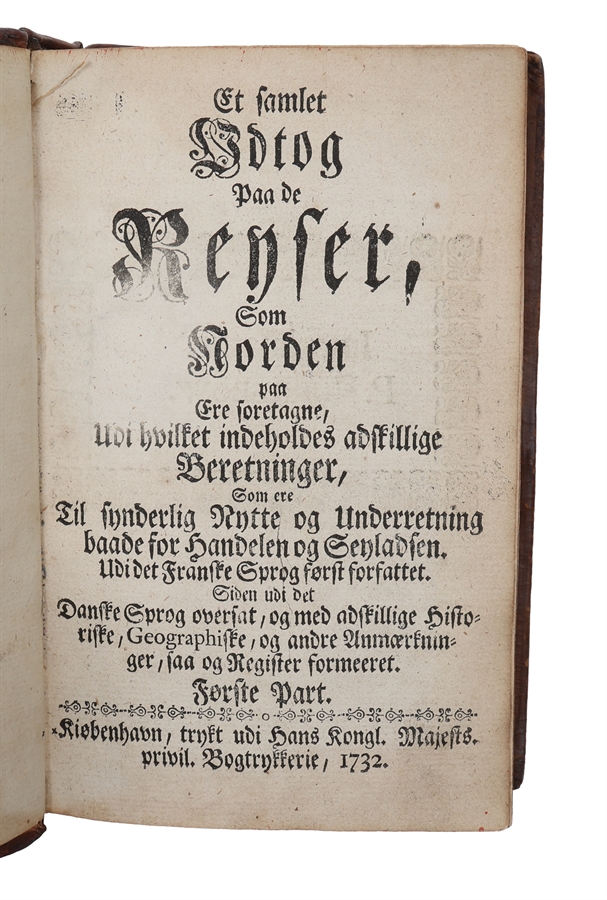 Et samlet
Udtog
Paa de
Reyser,
Som
Norden
paa
Ere foretagne,
Udi hvilket indeholdes adskillige
Beretninger,
Som ere
Til synderlig Nytte og Underretning
baade for Handelen og Seyladsen.
Udi det Franske Sprog først forfattet.
Siden udi det
Danske Sprog oversat, og med adskillige Histo-
riske, Geographiske, og andre Anmærknin-
ger, saa og Register formeeret.
Første Part.
Kiøbenhavn, trykt udi Hans Kongl. Majests.
privil. Bogtrykkerie, 1732.